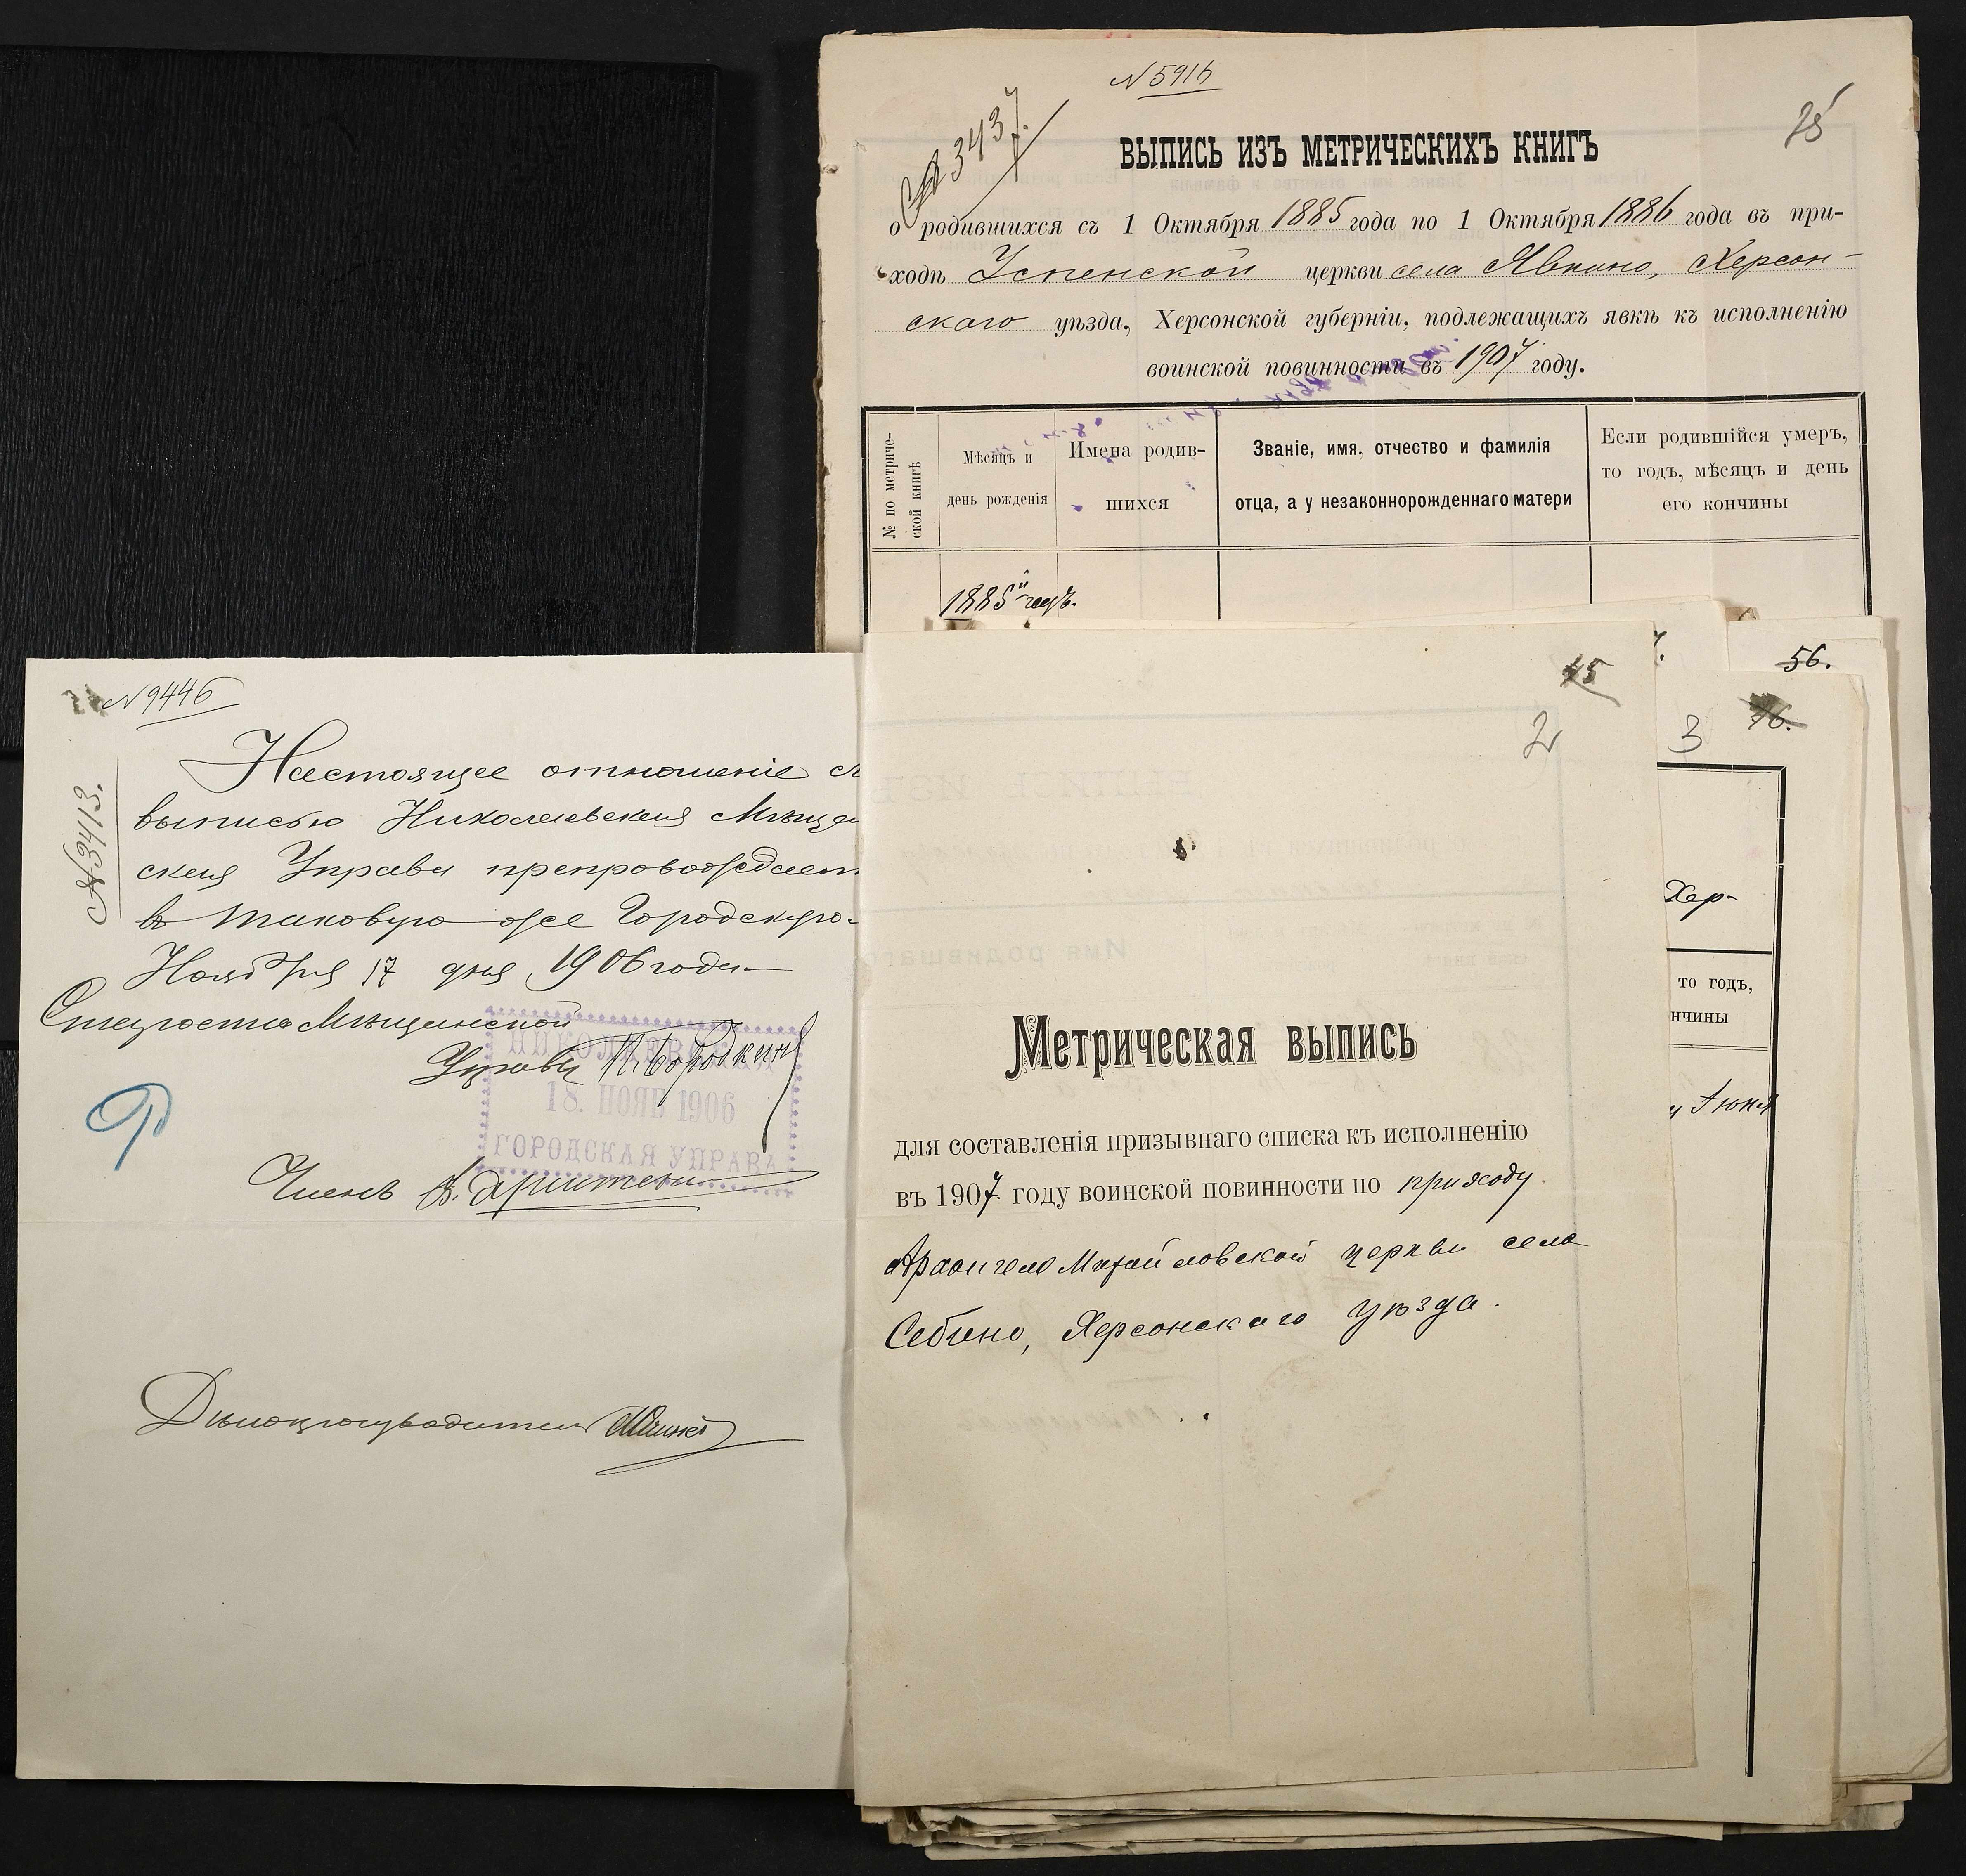 N 5916
N 3437.
25
ВЫПИСЬ ИЗЪ МЕТРИЧЕСКИХЪ КНИГЪ
о родившихся съ 1 Октября 1885 года по 1 Октября 1886 года въ при-
ходѣ Успенской церкви села Явкино, Херсон-
скаго уѣзда, Херсонской губерніи, подлежащихъ явкѣ къ исполненію
воинской повинности въ 1907 году.
№ по метриче-
ской книгѣ
Мѣсяцъ и
день рожденія
Имена родив-
шихся
Званіе, имя, отчество и фамилія
отца, а у незаконнорожденнаго матери
Если родившійся умеръ,
то годъ, мѣсяцъ и день
его кончины
1885й годъ.
N 9446
N 3413.
Настоящее отношеніе съ
выписью Николаевская Мѣщан
ская Управа препровождает
въ таковую же Городскую.
Ноября 17 дня 1906 года
Староста Мѣщанской
Управы П. Бородкинъ
НИКОЛАЕВСКАЯ
18. НОЯБ 1906
ГОРОДСКАЯ УПРАВА
Членъ
Дѣлопроизводитель
45
2
Метрическая выпись
для составленія призывнаго списка къ исполненію
въ 1907 году воинской повинности по приходу
Архангело Михайловской церкви села
Себино, Херсонскаго уѣзда.
56.
46.
3
Хер-
то годъ,
нчины
Іюня